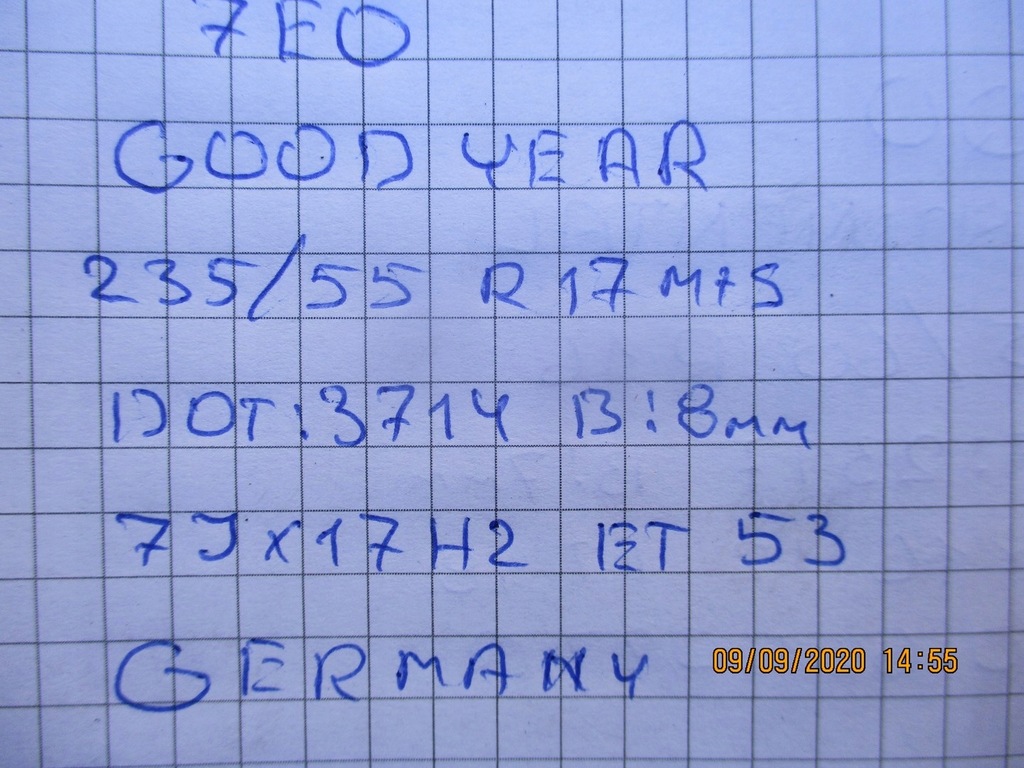 7EO
GOOD YEAR
235/55 R17 M+S
DOT:3714 B:8mm
7Jx17H2 ET 53
GERMANY
09/09/2020 14:55